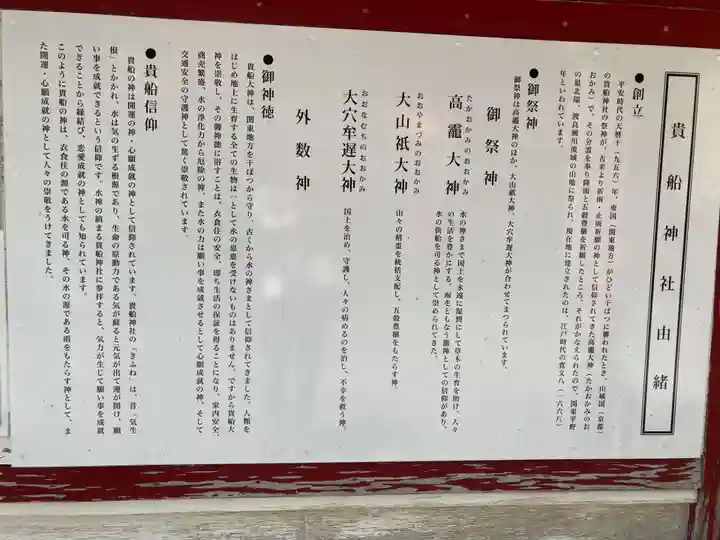 貴船神社由緒
●創立
平安時代の天暦十（九五六）年、東国（関東地方）がひどい干ばつに襲われたとき、山城国（京都）
の貴船神社の祭神が、古来より祈雨・止雨祈願の神として信仰されてきた高龗大神（たかおかみのお
おかみ）で、その分霊を奉り降雨と五穀豊穣を祈願したところ、それがかなえられたので、関東平野
の最北端、渡良瀬川流域の山地に祭られ、現在地に建立されたのは、江戸時代の寛文八（一六六八）
年といわれています。
●御祭神
御祭神は高龗大神のほか、大山祇大神、大穴牟遅大神が合わせてまつられています。
御祭神
たかおかみのおおかみ
高龗大神
水の神さまで国土を永遠に湿潤にして草木の生育を助け、人々
の生活を豊かにする。雨をともなう龍神としての信仰があり、
水の供給を司る神として崇められてきた。
おおやまづみのおおかみ
大山祇大神
山々の精霊を統括支配し、五穀豊穣をもたらす神。
おおなむちのおおかみ
大穴牟遅大神
国土を治め、守護し、人々の病めるのを治し、不幸を救う神。
外数神
●御神徳
貴船大神は、関東地方を干ばつから守り、古くから水の神さまとして信仰されてきました。人類を
はじめ地上に生育する全ての生物は一として水の恩恵を受けないものはありません。ですから貴船大
神を崇敬し、その御神徳に浴すことは、衣食住の安全、即ち生活の保証を得ることになり、家内安全、
商売繁盛、水の浄化力から厄除の神、また水の力は願い事を成就させるとして心願成就の神、そして
交通安全の守護神として篤く崇敬されています。
●貴船信仰
貴船の神は開運の神・心願成就の神として信仰されています。貴船神社の「きふね」は、昔「気生
根」とかかれ、水は気の生ずる根源であり、生命の原動力である気が蘇ると元気が出て運が開け、願
い事を成就できるという信仰です。水神の鎮まる貴船神社に参拝すると、気力が生じて願い事を成就
できることから縁結び、恋愛成就の神としても知られています。
このように貴船の神は、衣食住の源である水を司る神、その水の源である雨をもたらす神として、ま
た開運・心願成就の神として人々の崇敬をうけてきました。